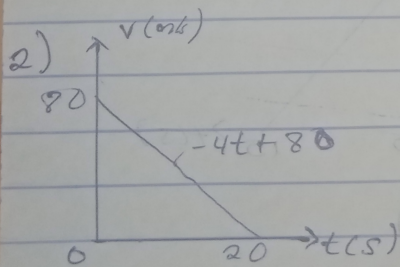 V(m/s)
2)
80
-4t+80
0
20
t(s)